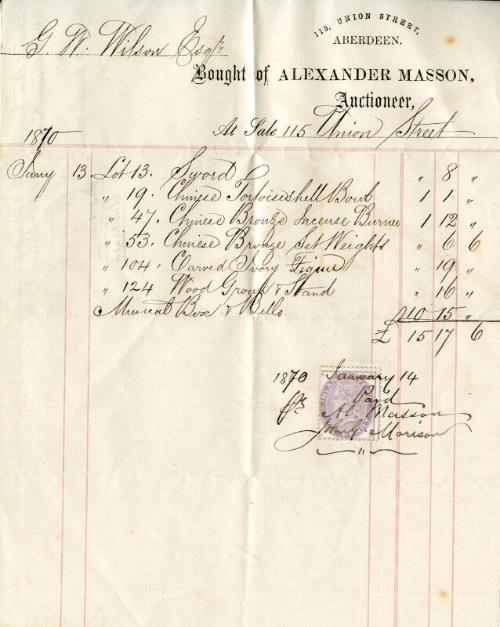 115, UNION STREET,
ABERDEEN.
G. W. Wilson Esqr
Bought of ALEXANDER MASSON,
Auctioneer,
At Sale 115 Union Street
1870
Jany 13. Lot 13. Sword " 8 "
" 19. Chinese Tortoiseshell Bowl 1 1 "
" 47. Chinese Bronze Incense Burner 1 12 "
" 53. Chinese Bronze Set Weights " 6 6
" 104 Carved Ivory Figure " 19 "
" 124 Wood Group & Stand " 16 "
Musical Box & Bells 10 15 "
£ 15 17 6
1870 January 14
Paid
Masson
Morison